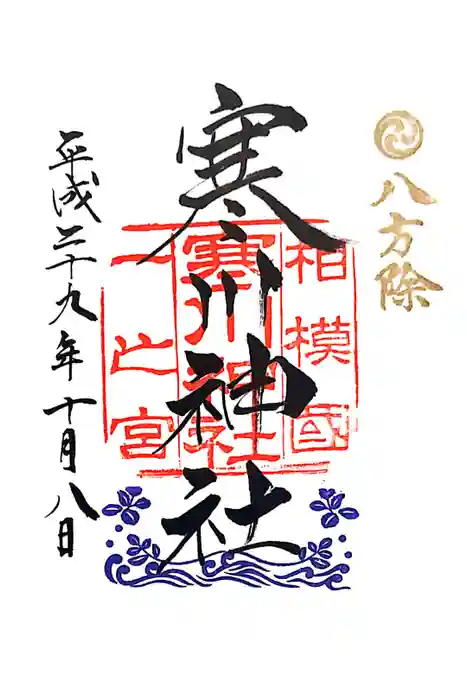 八方除
寒川神社
相模國
寒川神社
一之宮
平成二十九年十月八日